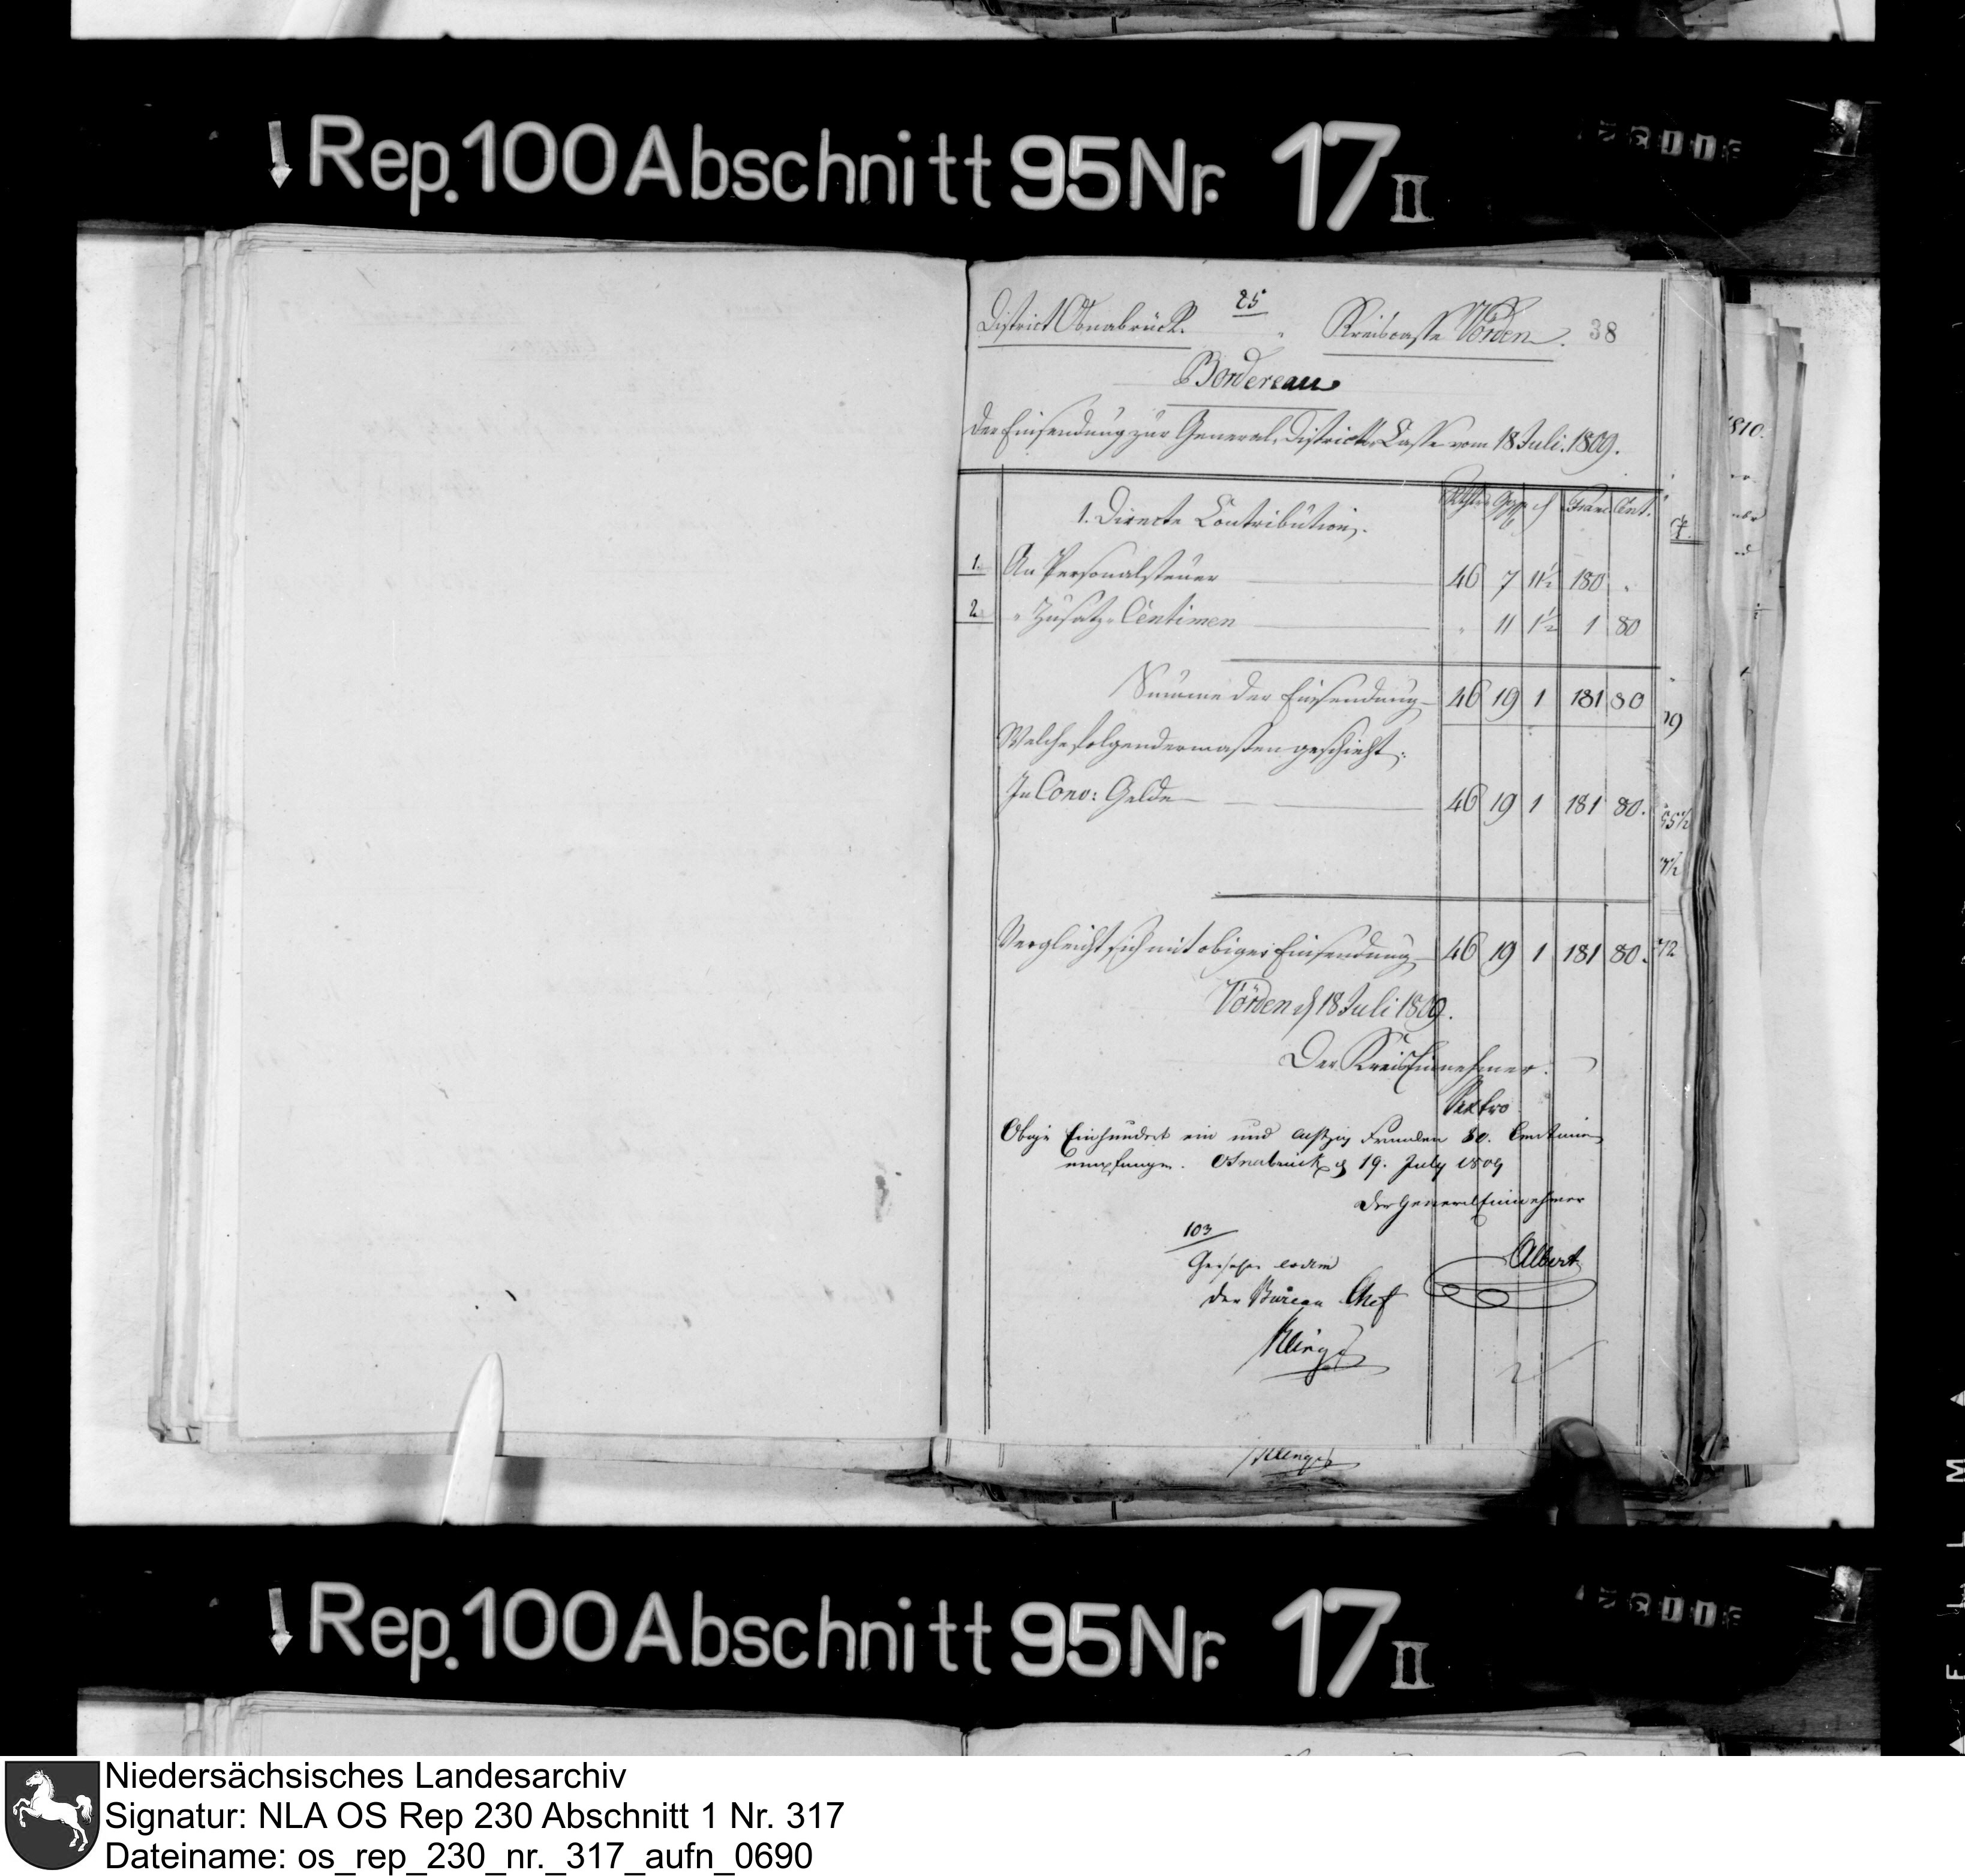 Rep. 100 Abschnitt 95 Nr. 17 II
25
District Osnabrück. Kreiscasse Vörden. 38
Bordereau
der Einsendung zur General-Districts-Casse vom 18 Juli 1809.
Rthlr Ggr ₰ Franc Cent.
1. Directe Contribution.
1. An Personalsteuer 46 7 11½ 180 "
2. " Zusatz-Centimen " 11 1½ 1 80
Summe der Einsendung 46 19 1 181 80
Welche folgendermaßen geschieht:
In Conv: Gelde 46 19 1 181 80.
Vergleicht sich mit obiger Einsendung 46 19 1 181 80.
Vörden d 18 Juli 1809.
Der Kreis Einnehmer.
Obige Einhundert ein und achtzig Franken 80. Centimen
empfangen. Osnabrück d 19. July 1809
der General Einnehmer
Albert
103
Gesehen eodem
der Büreau Chef
1810.
Rep. 100 Abschnitt 95 Nr. 17 II
Niedersächsisches Landesarchiv
Signatur: NLA OS Rep 230 Abschnitt 1 Nr. 317
Dateiname: os_rep_230_nr._317_aufn_0690